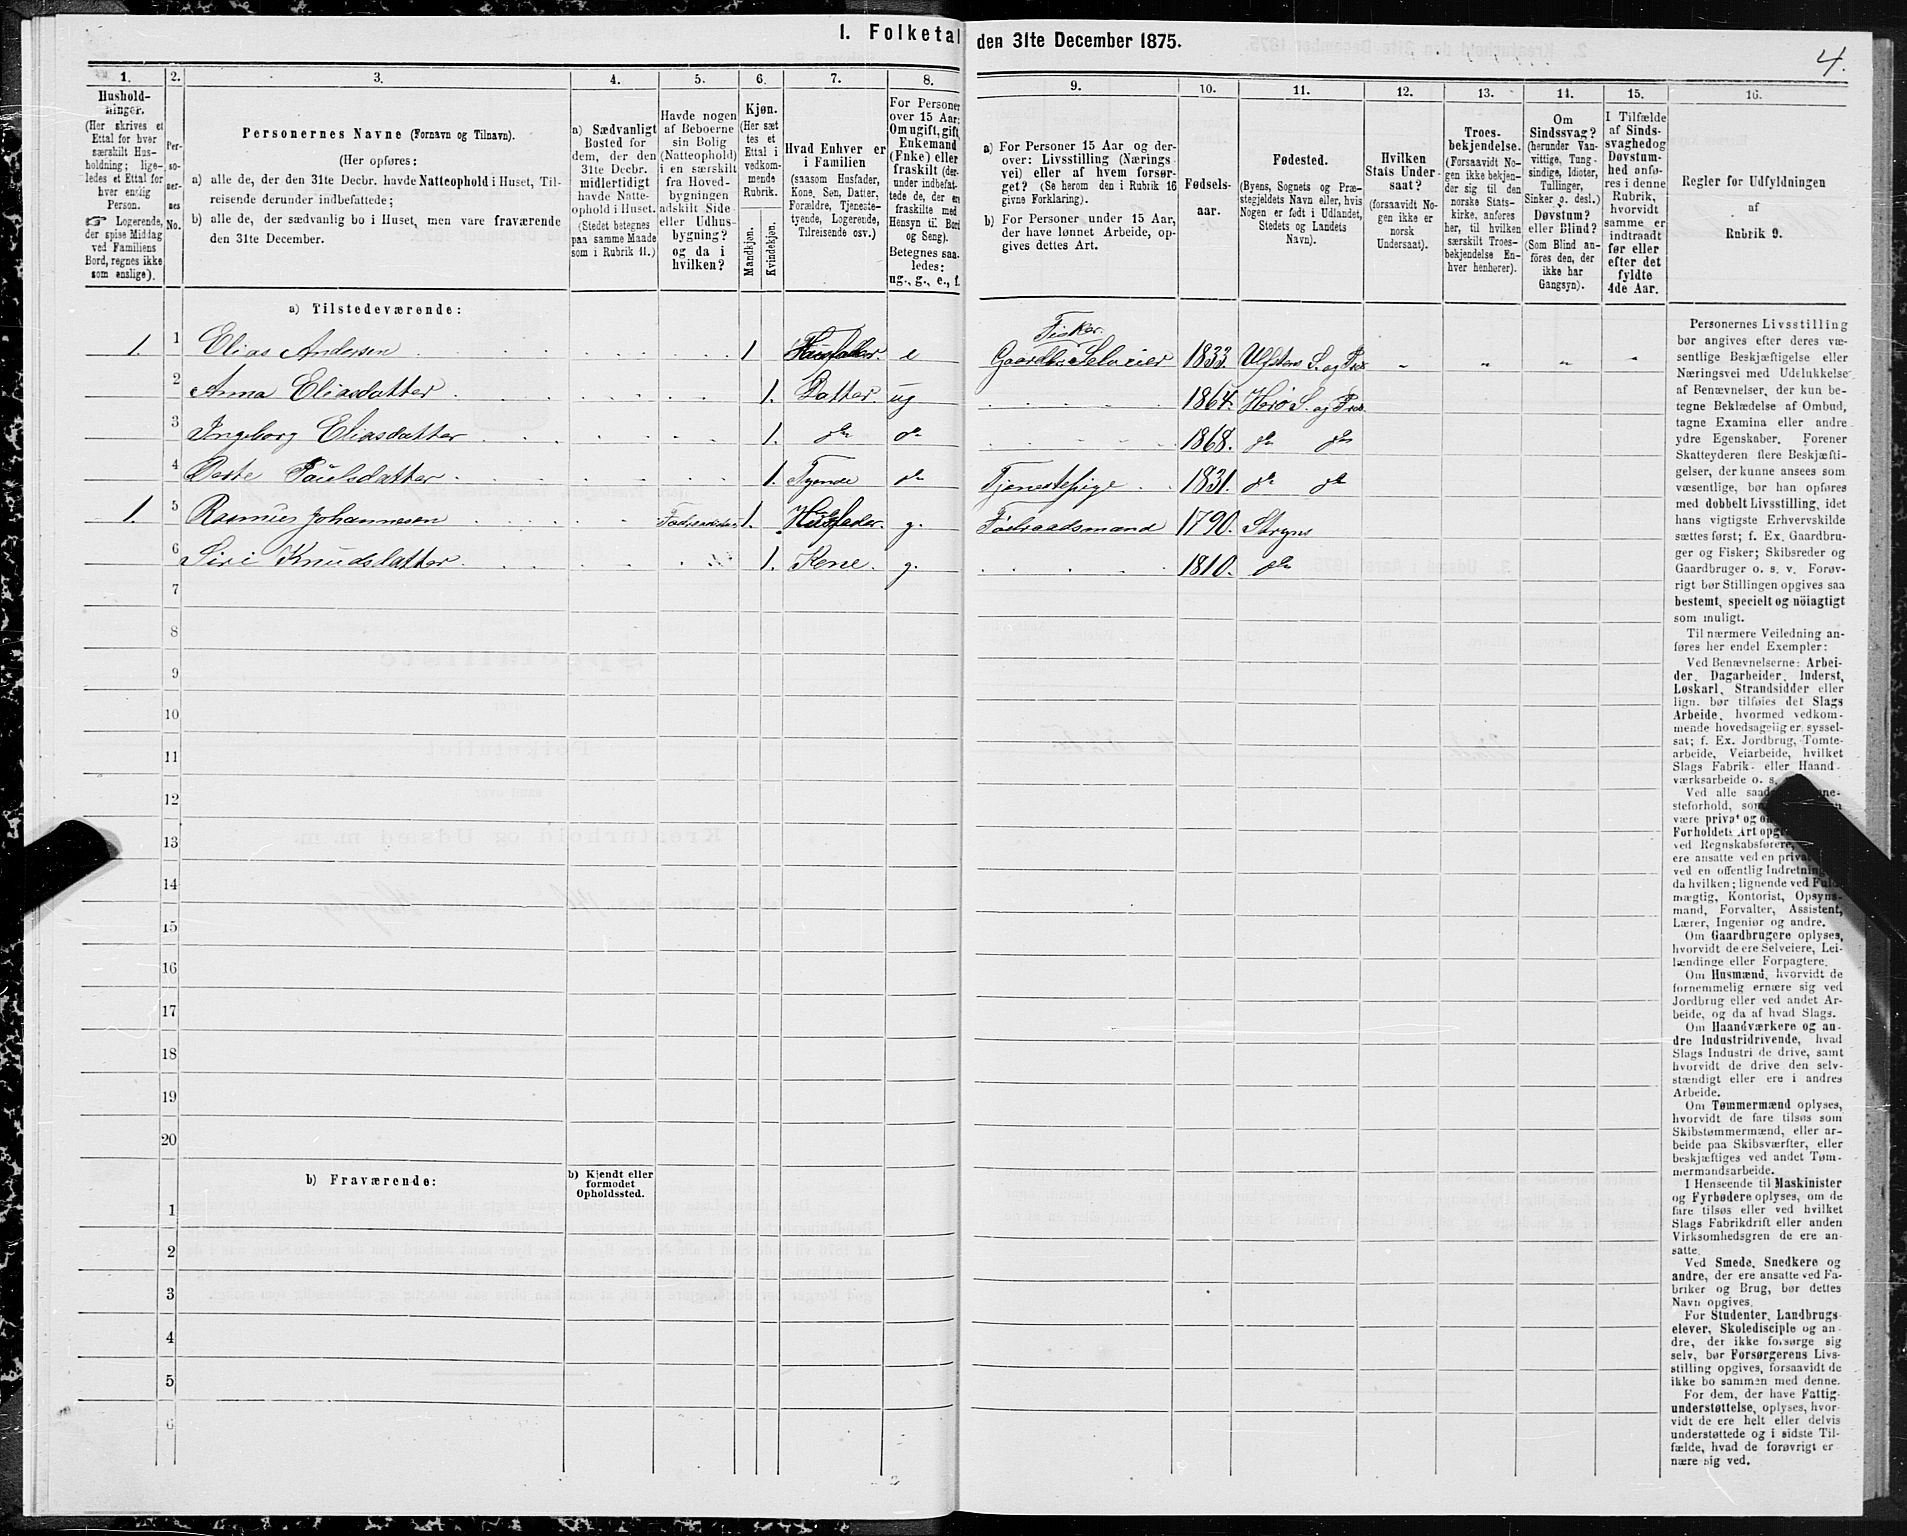 I. Folketal den 31te December 1875.
4.
1.
2.
3.
4.
5.
6.
7.
8.
9.
10.
11.
12.
13.
14.
15.
16.
Hushold-
ninger.
(Her skrives et
Ettal for hver
særskilt Hus-
holdning; lige-
ledes et Ettal for
hver enslig
Person.
☞ Logerende,
der spise Middag
ved Familiens
Bord, regnes ikke
som enslige).
Per-
so-
ner-
nes
No.
Personernes Navne (Fornavn og Tilnavn).
(Her opføres:
a) alle de, der den 31te Decbr. havde Natteophold i Huset, Til-
reisende derunder indbefattede;
b) alle de, der sædvanlig bo i Huset, men vare fraværende
den 31te December.
a) Sædvanligt
Bosted for
dem, der den
31te Decbr.
midlertidigt
havde Natte-
ophold i Huset.
(Stedet betegnes
paa samme Maade
som i Rubrik 11.)
Havde nogen
af Beboerne
sin Bolig
(Natteophold)
i en særskilt
fra Hoved-
bygningen
adskilt Side-
eller Udhus-
bygning?
og da i
hvilken?
Kjøn.
(Her sæt
tes et
Ettal i
vedkom-
mende
Rubrik.
Mandkjøn.
Kvindekjøn.
Hvad Enhver er
i Familien
(saasom Husfader,
Kone, Søn, Datter,
Forældre, Tjeneste-
tyende, Logerende,
Tilreisende osv.)
For Personer
over 15 Aar:
Om ugift, gift,
Enkemand
(Enke) eller
fraskilt (der-
under indbefat-
tede de, der ere
fraskilte med
Hensyn til Bord
og Seng).
Betegnes saa-
ledes:
ug., g., e., f.
a) For Personer 15 Aar og der-
over: Livsstilling (Nærings
vei) eller af hvem forsør-
get? (Se herom den i Rubrik 16
givne Forklaring).
b) For Personer under 15 Aar,
der have lønnet Arbeide, op-
gives dettes Art.
Fødsels-
aar.
Fødested.
(Byens, Sognets og Præ-
stegjeldets Navn eller, hvis
Nogen er født i Udlandet,
Stedets og Landets
Navn).
Hvilken
Stats Under-
saat?
(forsaavidt No-
gen ikke er
norsk
Undersaat).
Troes-
bekjendelse.
(Forsaavidt No-
gen ikke bekjen-
der sig til den
norske Stats-
kirke, anføres
her, til hvilken
særskilt Troes-
bekjendelse En-
hver henhører).
Om
Sindssvag?
(herunder Van-
vittige, Tung-
sindige, Idioter,
Tullinger,
Sinker o. desl.)
Døvstum?
eller Blind?
(Som Blind an-
føres den, der
ikke har
Gangsyn).
I Tilfælde
af Sinds-
svaghed og
Døvstum-
hed anfø-
res i denne
Rubrik,
hvorvidt
samme er
indtraadt
før eller
efter det
fyldte
4de Aar.
Regler for Udfyldningen
af
Rubrik 9.
a) Tilstedeværende:
1. 1 Elias Andersen 1 Husfader e Fisker. Gaardbr. Selveier 1833. Ulfsten S. og Præ. " " " "
2 Anna Eliasdatter 1. Datter. ug 1864. Herø S. og Præ.
3 Ingeborg Eliasdatter 1. do do 1868. do do
4 Paulsdatter 1. Tyende do Tjenestepige 1831. do do
1. 5 Rasmus Johannesen 1. Husfader. g. Føderaadsmand 1790. Stryn
6 Siri Knudsdatter 1. Kone. g. 1810. do
7
8
9
10
11
12
13
14
15
16
17
18
19
20
b) Fraværende:
b) Kjendt eller
formodet
Opholdssted.
1
2
3
4
5
6
Personernes Livsstilling
bør angives efter deres væ-
sentlige Beskjæftigelse eller
Næringsvei med Udelukkelse
af Benævnelser, der kun be-
tegne Beklædelse af Ombud,
tagne Examina eller andre
ydre Egenskaber. Forener
Skatteyderen flere Beskjæfti-
gelser, der kunne ansees som
væsentlige, bør han opføres
med dobbelt Livsstilling, idet
hans vigtigste Erhvervskilde
sættes først; f. Ex. Gaardbru-
ger og Fisker; Skibsreder og
Gaardbruger o. s. v. Forøv-
rigt bør Stillingen opgives saa
bestemt, specielt og nöiagtigt
som muligt.
Til nærmere Veiledning an-
føres her endel Exempler:
Ved Benævnelserne: Arbei-
der, Dagarbeider, Inderst,
Løskarl, Strandsidder eller
lign. bør tilføies det Slags
Arbeide, hvormed vedkom-
mende hovedsagelig er syssel-
sat; f. Ex. Jordbrug, Tomte-
arbeide, Veiarbeide, hvilket
Slags Fabrik- eller Haand-
værksarbeide o. s.
Ved alle
steforhold,
være privat og
Forholdets Art
ved Regnskabsførere,
ere ansatte ved en privat
ved en offentlig Indretning
da hvilken; lignende ved
mægtig, Kontorist, Opsyns-
mand, Forvalter, Assistent,
Lærer, Ingeniør og andre.
Om Gaardbrugere oplyses,
hvorvidt de ere Selveiere, Lei-
lændinge eller Forpagtere.
Om Husmænd, hvorvidt de
fornemmelig ernære sig ved
Jordbrug eller ved andet Ar-
beide, og da af hvad Slags.
Om Haandværkere og an-
dre Industridrivende, hvad
Slags Industri de drive, samt
hvorvidt de drive den selv-
stændigt eller ere i andres
Arbeide.
Om Tømmermænd oplyses,
hvorvidt de fare tilsøs som
Skibstømmermænd, eller ar-
beide paa Skibsværfter, eller
beskjæftiges ved andet Tøm-
mermandsarbeide.
I Henseende til Maskinister
og Fyrbødere oplyses, om de
fare tilsøs eller ved hvilket
Slags Fabrikdrift eller anden
Virksomhedsgren de ere an-
satte.
Ved Smede, Snedkere og
andre, der ere ansatte ved Fa-
briker og Brug, bør dettes
Navn opgives.
For Studenter, Landbrugs-
elever, Skoledisciple og an-
dre, der ikke forsørge sig
selv, bør Forsørgerens Livs-
stilling opgives, forsaavidt de
ikke bo sammen med denne.
For dem, der have Fattig-
understøttelse, oplyses, hvor-
vidt de ere helt eller delvis
understøttede og i sidste Til-
fælde, hvad de forøvrigt er-
nære sig ved.